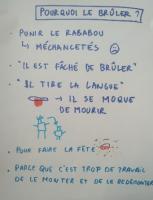 POURQUOI LE BRÛLER ?
• PUNIR LE RABABOU
↳ MÉCHANCETÉS
• "IL EST FÂCHÉ DE BRÛLER"
• "IL TIRE LA LANGUE"
→ IL SE MOQUE
DE MOURIR
• POUR FAIRE LA FÊTE
• PARCE QUE C'EST TROP DE TRAVAIL
DE LE MONTER ET DE LE REDÉMONTER